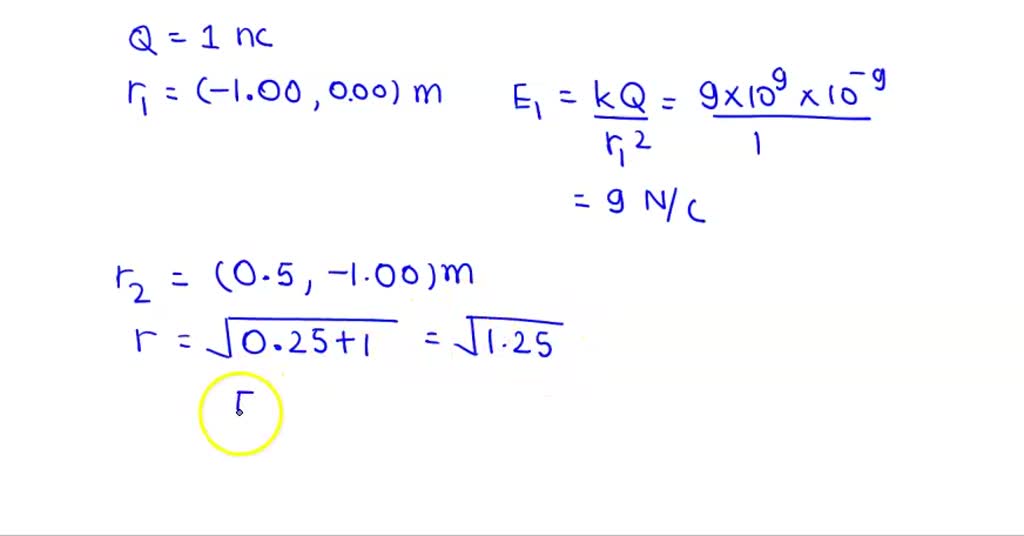 Q = 1 nc
r₁ = (-1.00, 0.00) m
E₁ = kQ/r₁² = 9×10⁹ × 10⁻⁹/1
= 9 N/C
r₂ = (0.5, -1.00) m
r = √0.25+1 = √1.25